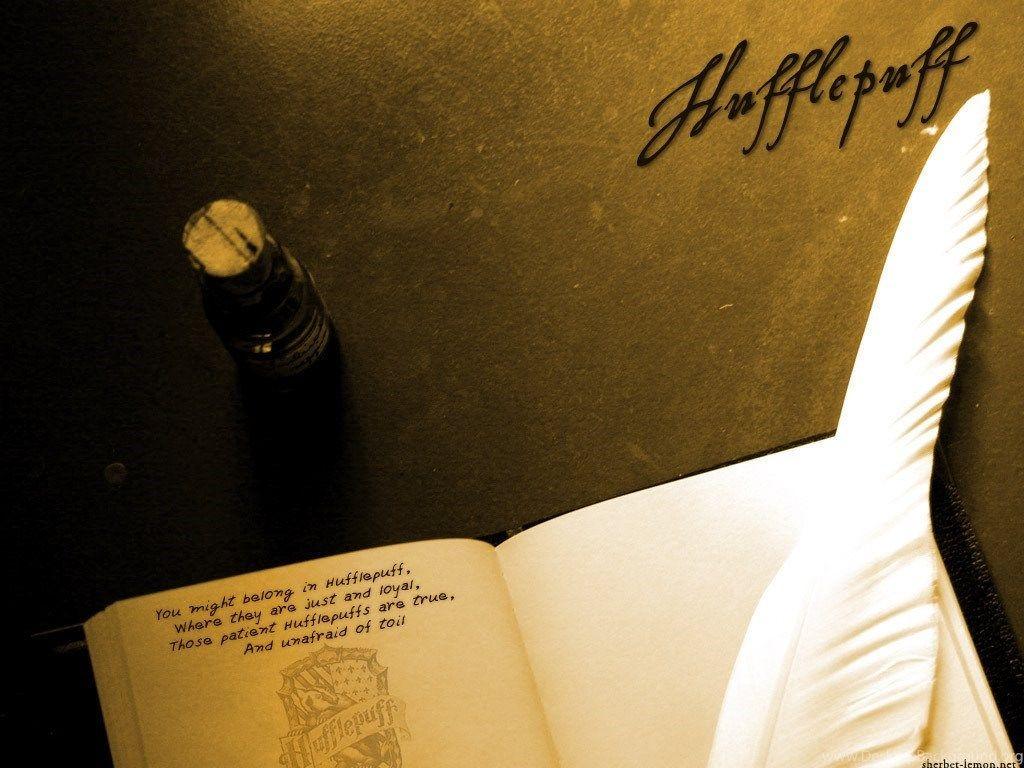 Hufflepuff
You might belong in Hufflepuff,
Where they are just and loyal,
Those patient Hufflepuffs are true,
And unafraid of toil
Hufflepuff
sherbet-lemon.net